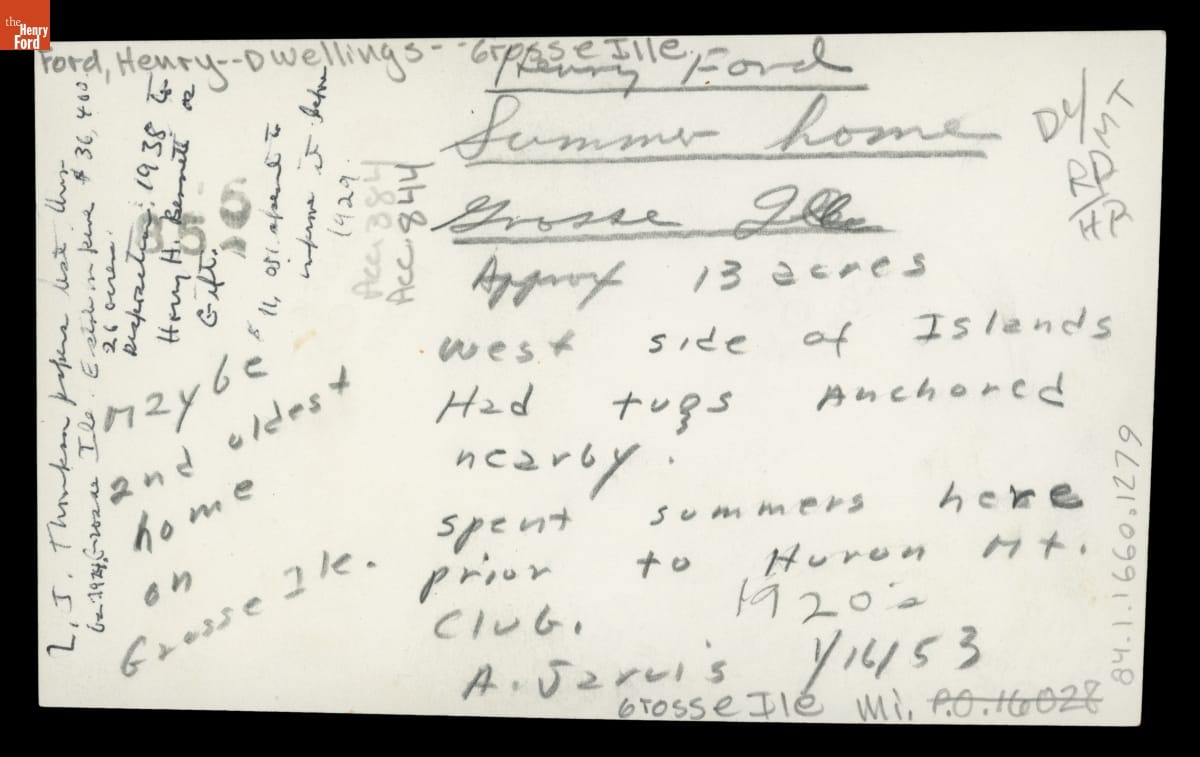 the Henry Ford
Ford, Henry--Dwellings--Grosse Ille.
Henry Ford
Summer home
Grosse Ille
Approx 13 acres
west side of Islands
Had tugs Anchored
nearby.
spent summers here
prior to Huron Mt.
Club. 1920's
A. Jarvis 1/16/53
Grosse Ile Mi. P.O. 16028
May be
2nd oldest
home
on
Grosse Ile.
L. J. Thompson papers list this
Grosse Ile. $36,400
26 acres.
Disposition: 1938 to
Harry H. Bennett as
Gift.
11,051 spent to
improve it before
1929.
Acc 384
Acc 844
D4/
84.1.1660.1279